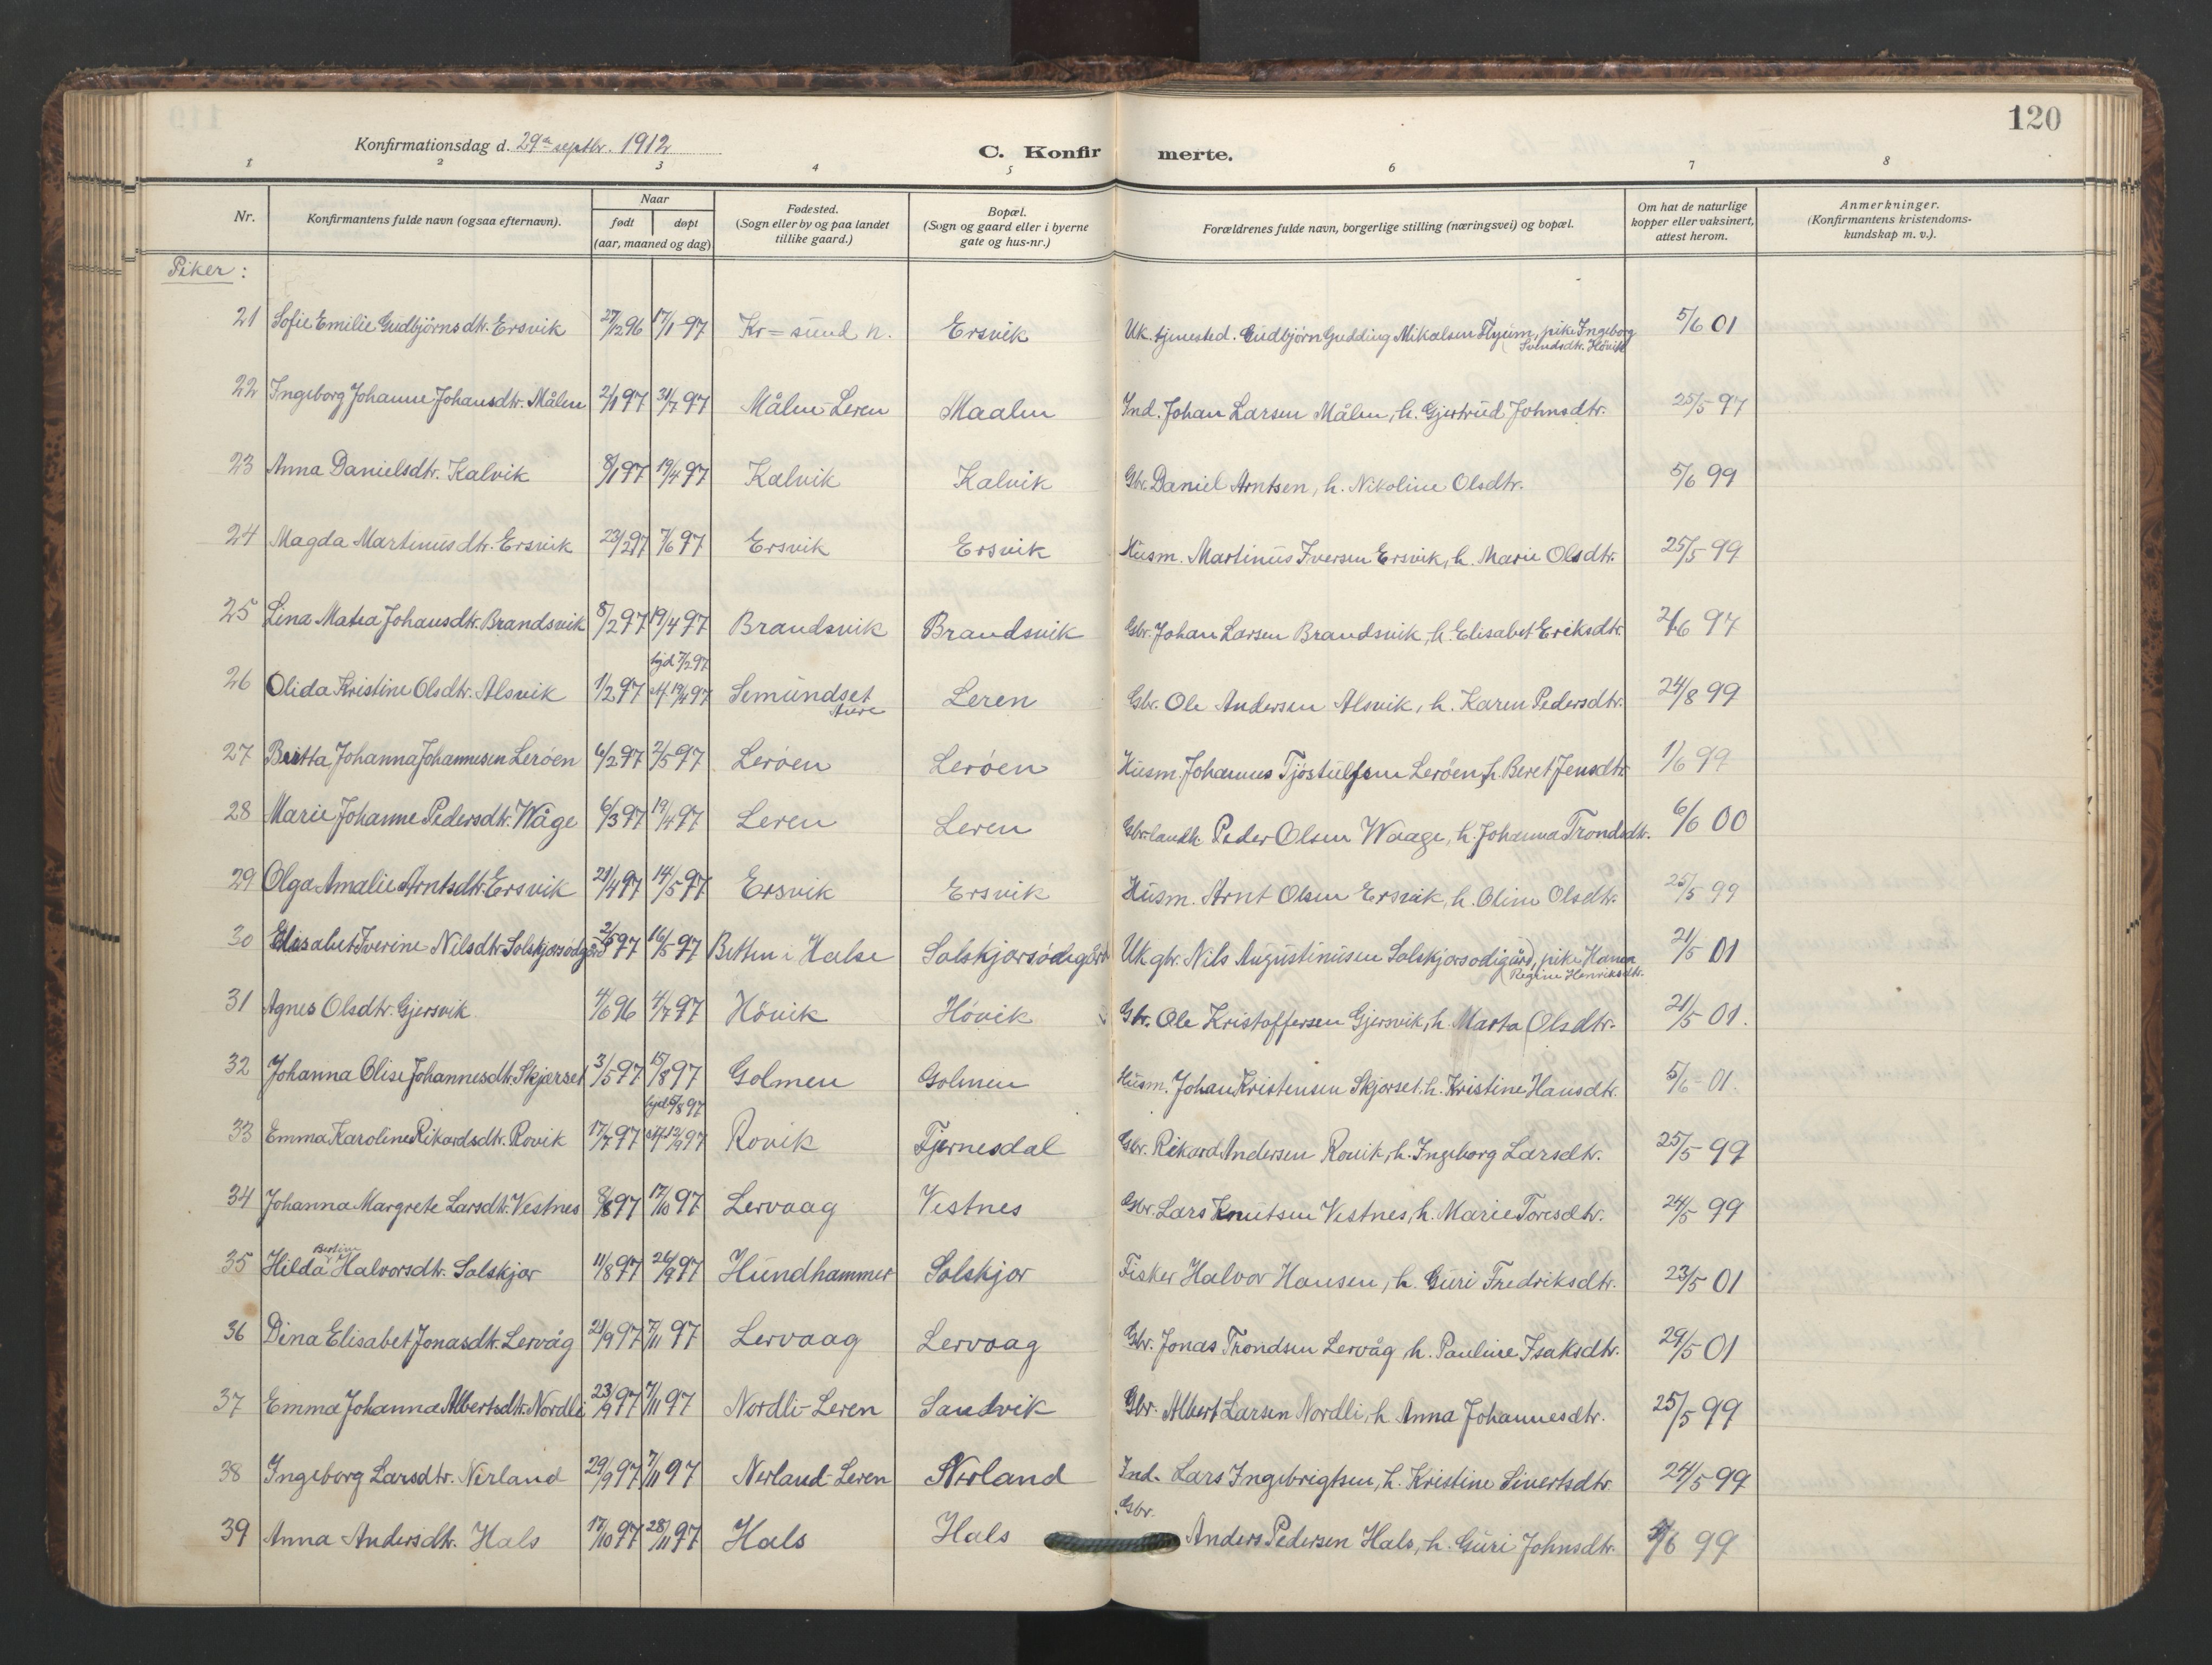 120
Konfirmationsdag d. 29de septbr. 1912
C. Konfirmerte.
1 2 3 4 5 6 7 8
Nr. Konfirmantens fulde navn (ogsaa efternavn). Naar født døpt (aar, maaned og dag) Fødested. (Sogn eller by og paa landet tillike gaard.) Bopæl. (Sogn og gaard eller i byerne gate og hus-nr.) Forældrenes fulde navn, borgerlige stilling (næringsvei) og bopæl. Om hat de naturlige kopper eller vaksinert, attest herom. Anmerkninger. (Konfirmantens kristendoms-kundskap m. v.).
Piker:
21 Sofie Emilie Gudbjörnsdtr. Ersvik 27/12 96 17/1 97 Kr=sund n. Ersvik Uk. tjenested. Gudbjörn Gudding Mikalsen Flyum, pike Ingeborg Svendsdtr. Hövik 5/6 01
22 Ingeborg Johanne Johansdtr. Målen 2/1 97 31/7 97 Målen-Leren Maalen Ind. Johan Larsen Målen, h. Gjertrud Johnsdtr. 25/5 97
23 Anna Danielsdtr. Kalvik 8/1 97 19/4 97 Kalvik Kalvik Gbr. Daniel Arntsen, h. Nikoline Olsdtr. 5/6 99
24 Magda Martinusdtr. Ersvik 23/2 97 7/6 97 Ersvik Ersvik Husm. Martinus Iversen Ersvik, h. Marie Olsdtr. 25/5 99
25 Lina Matea Johansdtr. Brandsvik 8/2 97 19/4 97 Brandsvik Brandsvik Gbr. Johan Larsen Brandsvik, h. Elisabet Eriksdtr. 2/6 97
26 Olida Kristine Olsdtr. Alsvik 1/2 97 hjd 7/2 97 st. 19/4 97 Semundset Aure Leren Gbr. Ole Andersen Alsvik, h. Karen Pedersdtr. 24/8 99
27 Beritta Johanna Johannesen Leröen 6/2 97 2/5 97 Leröen Leröen Husm. Johannes Tjöstulfsen Leröen, h. Beret Jensdtr. 1/6 99
28 Marie Johanne Pedersdtr. Wåge 6/3 97 19/4 97 Leren Leren Gbr.landh. Peder Olsen Waage, h. Johanna Trondsdtr. 6/6 00
29 Olga Amalie Arntsdtr. Ersvik 21/4 97 14/5 97 Ersvik Ersvik Husm. Arnt Olsen Ersvik, h. Oline Olsdtr. 25/5 99
30 Elisabet Iverine Nilsdtr. Solskjærsödegård 2/5 97 16/5 97 Betten i Halse Solskjærsödegård Uk gbr. Nils Augustinusen Solskjærsödegård, pike Hanna Regine Henriksdtr. 21/5 01
31 Agnes Olsdtr. Gjersvik 4/6 96 4/7 97 Hövik Hövik Gbr. Ole Kristoffersen Gjersvik, h. Marta Olsdtr. 21/5 01.
32 Johanna Olise Johannesdtr. Skjærset 3/5 97 15/8 97 Golmen Golmen Husm. Johan Kristensen Skjærset. h. Kristine Hansdtr. 5/6 - 01.
33 Emma Karoline Rikardsdtr. Rovik 17/7 97 hjd 5/8 97 st. 12/9 97 Rovik Tjernesdal Gbr. Rikard Andersen Rovik, h. Ingeborg Larsdtr. 25/5 99
34 Johanna Margrete Larsdtr. Vestnes 8/8 97 17/10 97 Lervaag Vestnes Gbr. Lars Knutsen Vestnes, h. Marie Toresdtr. 24/5 99
35 Hilda Bertine Halvorsdtr. Solskjær 11/8 97 26/9 97 Hundhammer Solskjær Fisker Halvor Hansen, h. Guri Fredriksdtr. 23/5 01
36 Dina Elisabet Jonasdtr. Lervåg 21/9 97 7/11 97 Lervaag Lervaag Gbr. Jonas Trondsen Lervåg, h. Pauline Isaksdtr. 29/5 01
37 Emma Johanna Albertsdtr. Nordli 23/9 97 7/11 97 Nordli-Leren Sandvik Gbr. Albert Larsen Nordli, h Anna Johannesdtr. 25/5 99
38 Ingeborg Larsdtr. Nerland 29/9 97 7/11 97 Nerland-Leren Nerland Ind. Lars Ingebrigtsen, h. Kristine Sivertsdtr. 24/5 99
39 Anna Andersdtr. Hals 17/10 97 28/11 97 Hals Hals Gbr. Anders Pedersen Hals, h. Guri Johnsdtr. /6 99